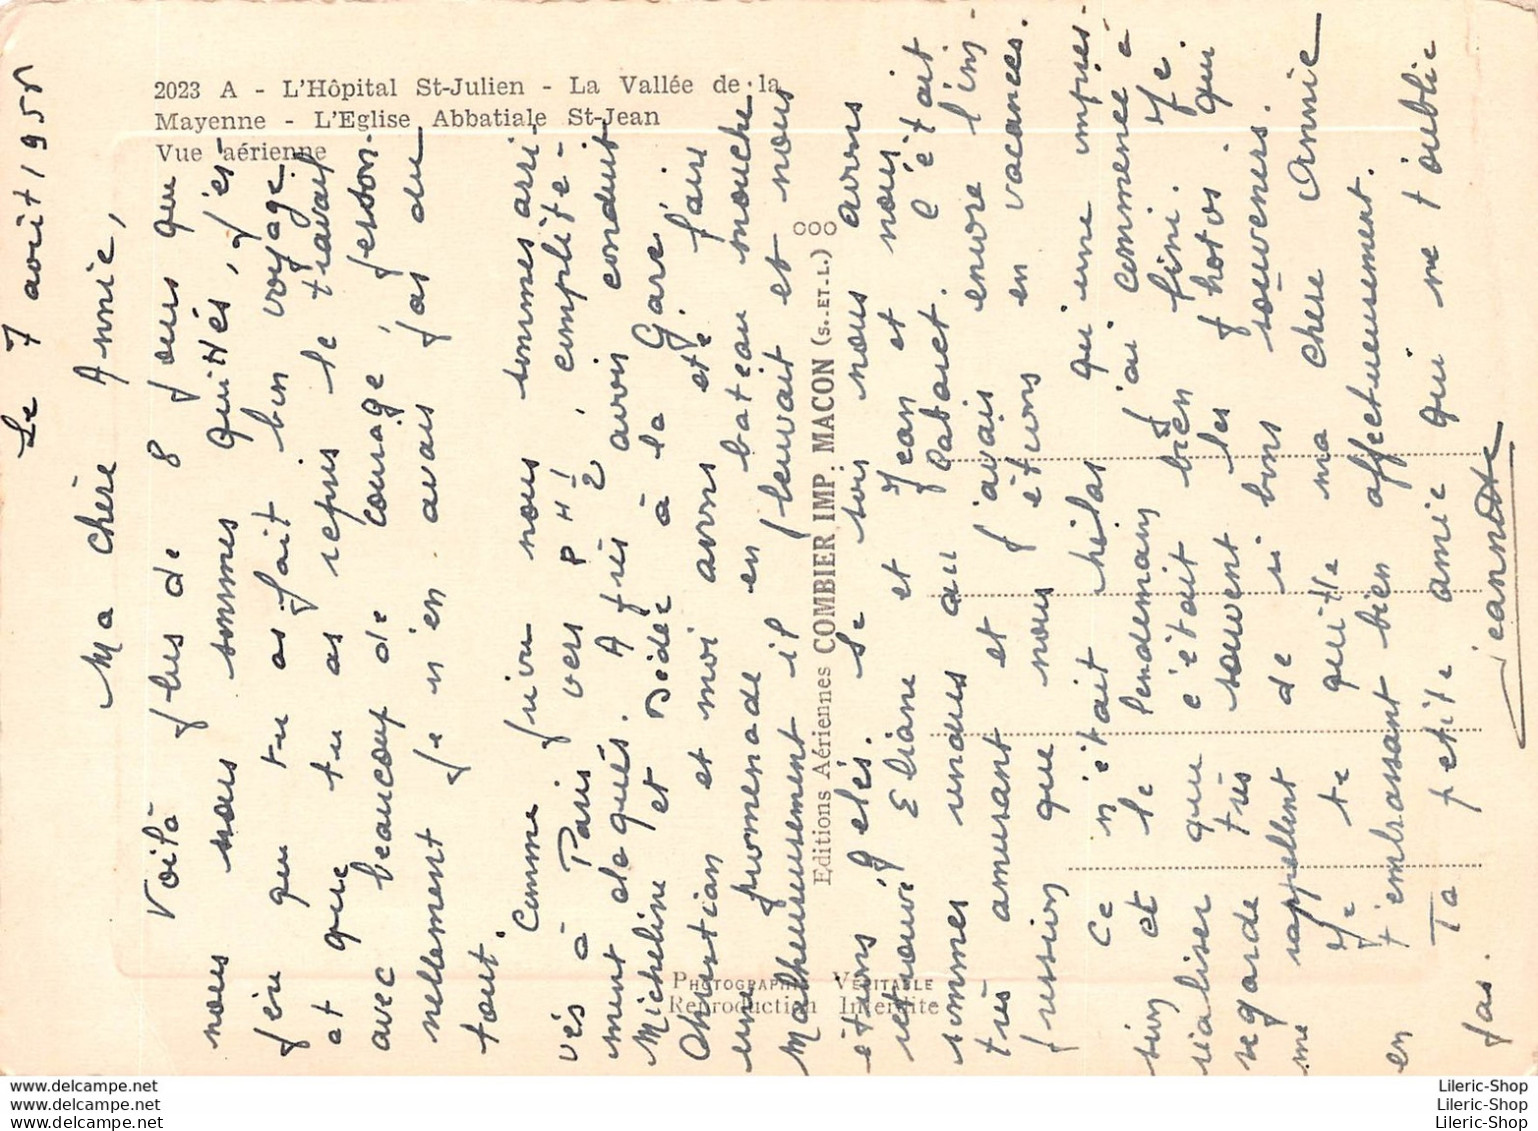 2023 A - L'Hôpital St-Julien - La Vallée de la
Mayenne - L'Eglise Abbatiale St-Jean
Vue aérienne
Le 7 août 1955
Ma chère Annie,
Voilà plus de 8 jours que
nous nous sommes quittés, j'es-
père que tu as fait bon voyage
et que tu as repris le travail
avec beaucoup de courage, person-
nellement je n'en avais pas du
tout.
Comme prévu nous sommes arri-
vés à Paris vers 8H 1/2, complète-
ment claqués. Après avoir conduit
Micheline et Dédée à la Gare
Christian et moi avons été faire
une promenade en bateau mouche
Malheureusement il pleuvait et nous
étions gelés. Le soir nous avons
retrouvé Eliane et Jean et nous
sommes rendus au Patouet. C'était
très amusant et j'avais encore l'im-
pression que nous étions en vacances.
Ce n'était hélas qu'une impres-
sion et le lendemain j'ai commencé à
réaliser que c'était bien fini. Je
regarde très souvent les photos qui
me rappellent de si bons souvenirs.
Je te quitte ma chère Annie
en t'embrassant bien affectueusement.
Ta petite amie qui ne t'oublie
pas.
Jeannette
Editions Aériennes COMBIER IMP. MACON (S.-ET-L.)
PHOTOGRAPHIE VÉRITABLE
Reproduction Interdite
www.delcampe.net
www.delcampe.net
www.delcampe.net
Lileric-Shop
Lileric-Shop
Lileric-Shop